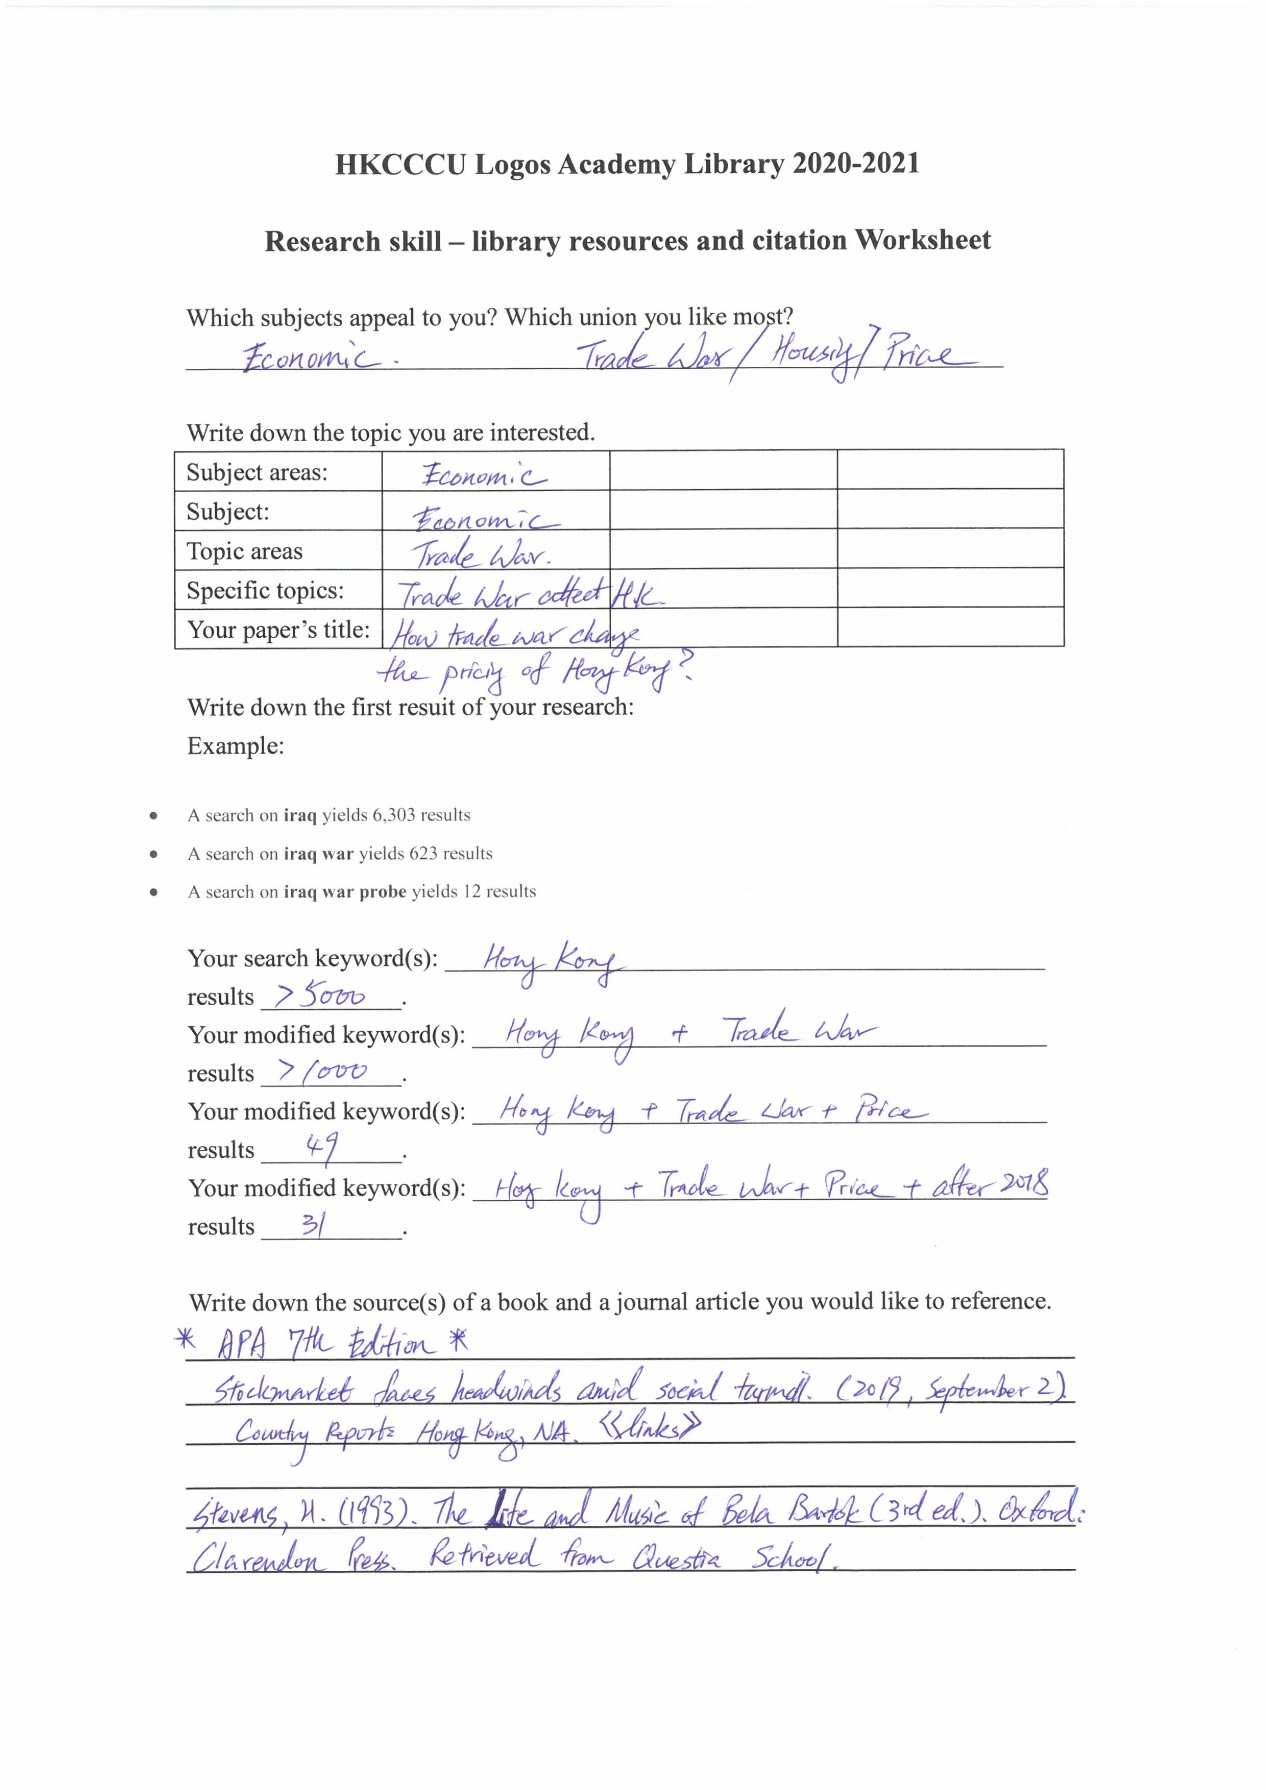 HKCCCU Logos Academy Library 2020-2021
Research skill – library resources and citation Worksheet
Which subjects appeal to you? Which union you like most?
Economic. Trade War / Housing / Price
Write down the topic you are interested.
Subject areas: Economic
Subject: Economic
Topic areas Trade War.
Specific topics: Trade War affect HK
Your paper's title: How trade war change
the pricing of Hong Kong?
Write down the first resuit of your research:
Example:
• A search on iraq yields 6,303 results
• A search on iraq war yields 623 results
• A search on iraq war probe yields 12 results
Your search keyword(s): Hong Kong
results > 5000.
Your modified keyword(s): Hong Kong + Trade War
results > 1000.
Your modified keyword(s): Hong Kong + Trade War + Price
results 49.
Your modified keyword(s): Hog Kong + Trade War + Price + after 2018
results 31.
Write down the source(s) of a book and a journal article you would like to reference.
* APA 7th Edition *
Stockmarket faces headwinds amid social turmoil. (2019, September 2)
Country Reports Hong Kong, NA. <<links>>
Stevens, H. (1993). The Life and Music of Bela Bartók (3rd ed.). Oxford:
Clarendon Press. Retrieved from Questia School.